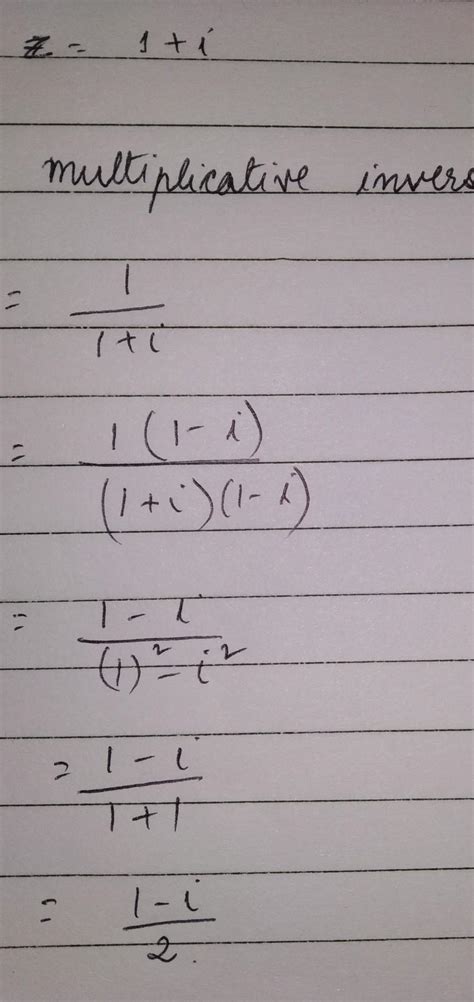 z = 1 + i
multiplicative invers
= 1 / 1 + i
= 1 (1 - i) / (1 + i) (1 - i)
= 1 - i / (1)² - i²
= 1 - i / 1 + 1
= 1 - i / 2.